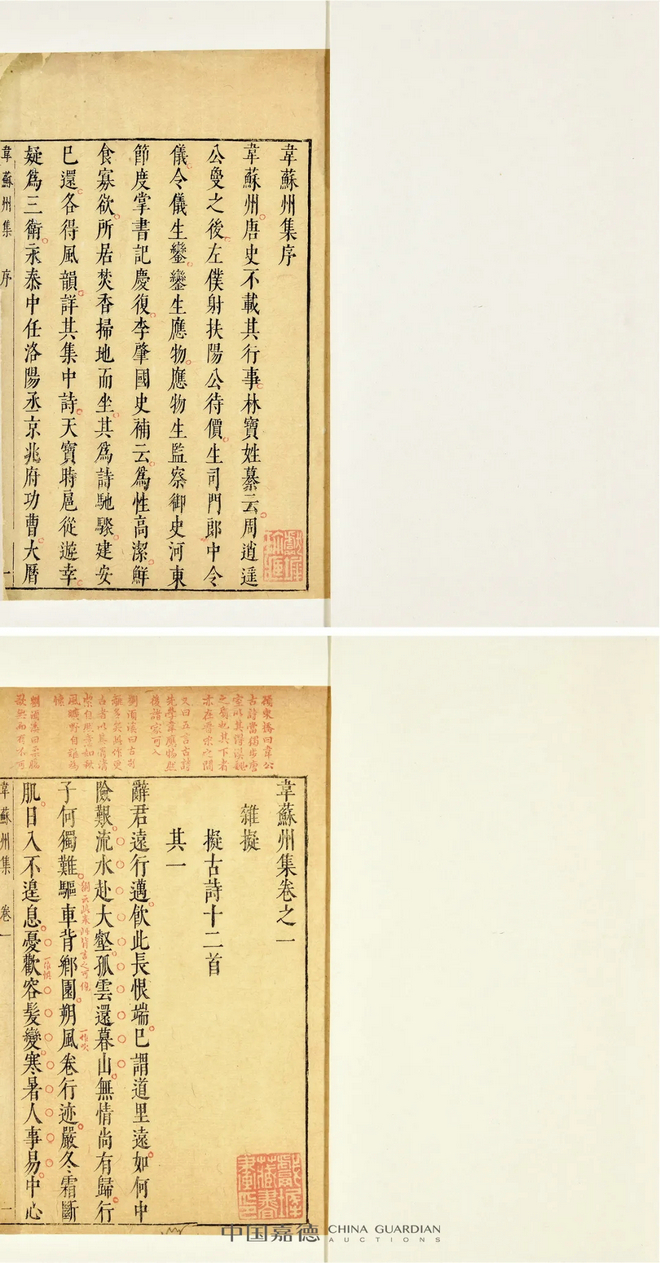 韋蘇州集序
韋蘇州唐史不載其行事林寶姓纂云周逍遥
公夐之後左僕射扶陽公待價生司門郎中令
儀令儀生鑾鑾生應物應物生監察御史河東
節度掌書記慶復李肇國史補云為性高潔鮮
食寡欲所居焚香掃地而坐其為詩馳驟建安
已還各得風韻詳其集中詩天寶時扈從遊幸
疑為三衛永泰中任洛陽丞京兆府功曹大曆
韋蘇州集 序 一
韋蘇州集卷之一
雜擬
擬古詩十二首
其一
辭君遠行邁飲此長恨端已謂道里遠如何中
險艱流水赴大壑孤雲還暮山無情尚有歸行
子何獨難驅車背鄉園朔風卷行迹嚴冬霜斷
肌日入不遑息憂歡容髮變寒暑人事易中心
韋蘇州集 卷一 一
中国嘉德 CHINA GUARDIAN
AUCTIONS